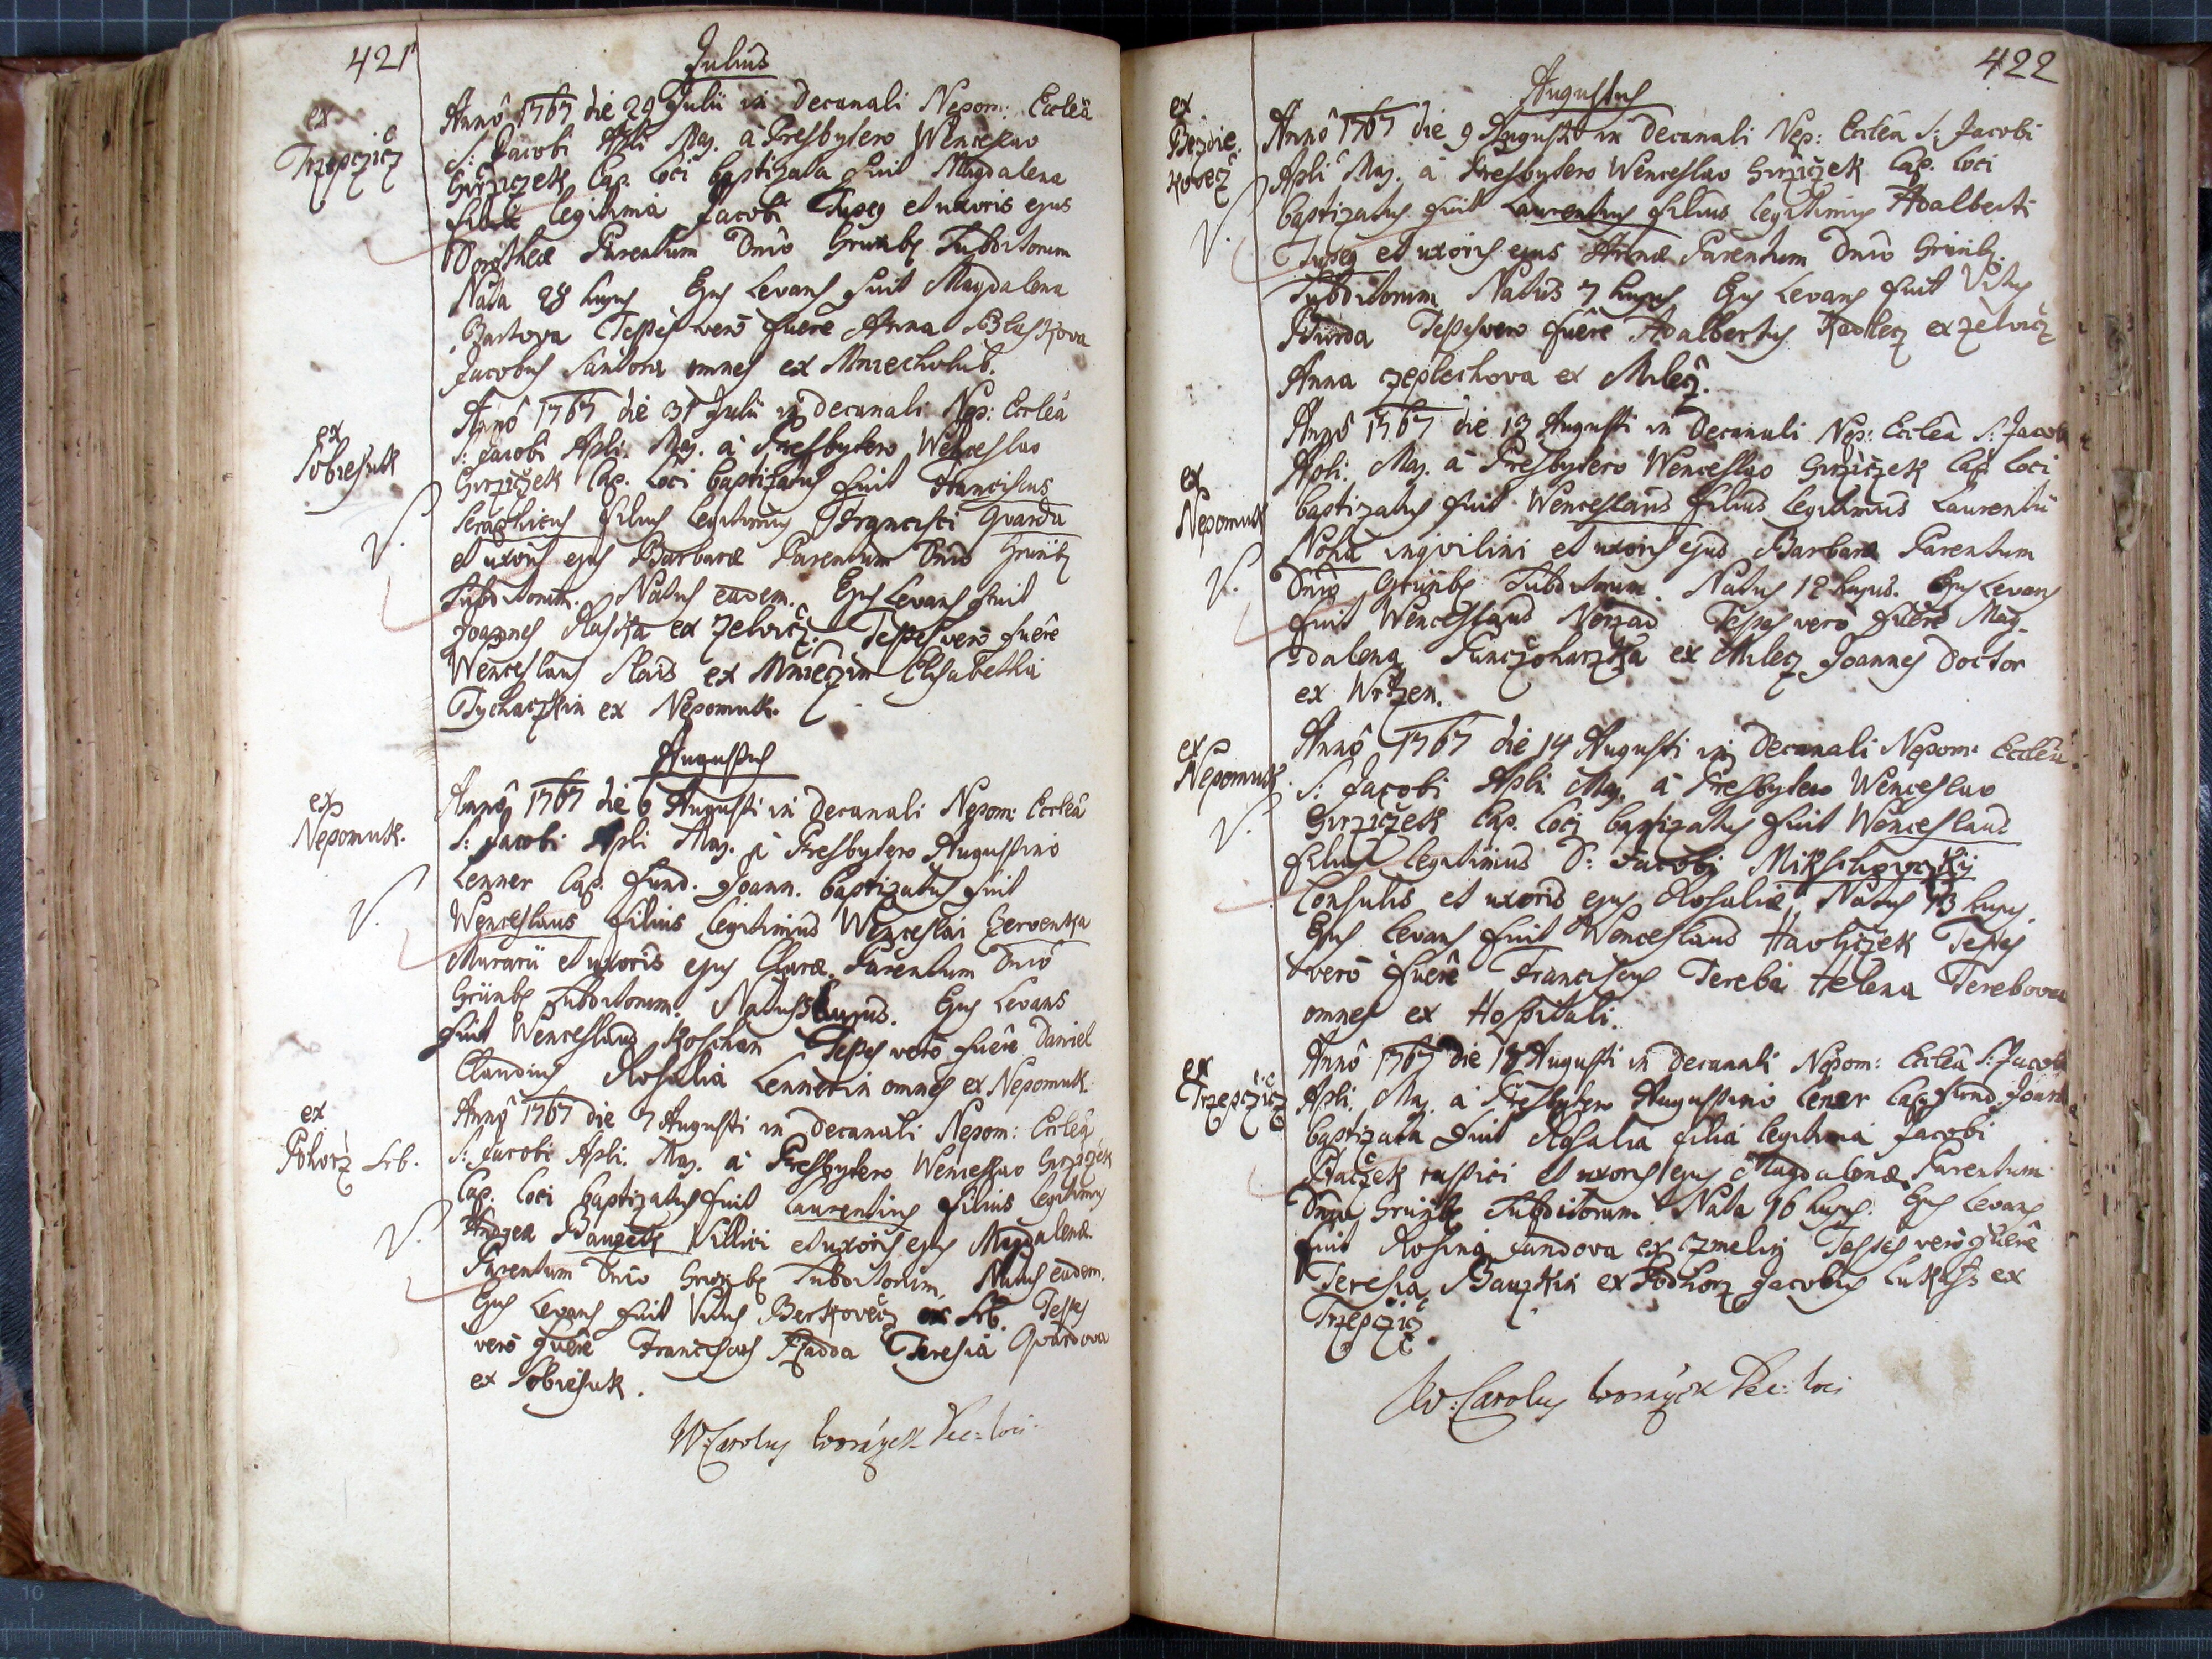 421
Julius
ex
Trzepczicz
Anno 1767 die 29 Julii in Decanali Nepom: Ecclea
S: Jacobi Apli Maj. a Presbytero Wenceslao
Girziczek Cap. Loci baptizata fuit Magdalena
filia legitima Jacobi Tupeg et uxoris ejus
Dorotheæ Parentum Dnio Grünb: Subditorum
Nata 28 hujus Ejus Levans fuit Magdalena
Bartova Testes vero fuere Anna Blaskova
Jacobus Santora omnes ex Mniecholub.
ex
Sobiesuk
Anno 1767 die 31 Julii in Decanali Nep: Ecclea
S: Jacobi Apli. Maj. a Presbytero Wenceslao
Girziczek Cap. Loci baptizatus fuit Franciscus
Seraphicus filius legitimus Francisci Quarda
V.
et uxoris ejus Barbaræ Parentum Dnio Grünb
Subditorum. Natus eadem. Ejus Levans fuit
Joannes ex Zelvicz. Testes vero fuere
Wenceslaus ex Elisabetha
ex Nepomuk.
Augustus
ex
Nepomuk.
Anno 1767 die 6 Augusti in Decanali Nepom: Ecclea
S: Jacobi Apli Maj. a Presbytero Augustino
Lenner Cap. fund. Joann. baptizatus fuit
V.
Wenceslaus filius legitimus Wenceslai Czerwenka
Murarii et uxoris ejus Claræ Parentum Dnio
Grünb Subditorum. Natus 5 hujus. Ejus Levans
fuit Wenceslaus Koschan Testes vero fuere Daniel
Claudius Rosalia Lennerin omnes ex Nepomuk.
ex
Pohorz Srb.
Anno 1767 die 7 Augusti in Decanali Nepom: Ecclea
S: Jacobi Apli. Maj. a Presbytero Wenceslao Girziczek
Cap. Loci baptizatus fuit Laurentius filius legitimus
V.
Andreæ Villici et uxoris ejus Magdalenæ
Parentum Dnio Grünb Subditorum. Natus eadem.
Ejus Levans fuit Vitus Berkovecz ex Srb. Testes
vero fuere Franciscus Teresia Quardova
ex Sobiesuk.
W: Carolus Worayczk Dec: loci
422
Augustus
ex
Bezdie-
kovecz
Anno 1767 die 9 Augusti in Decanali Nep: Ecclea S: Jacobi
Apli Maj. a Presbytero Wenceslao Girziczek Cap. Loci
V.
baptizatus fuit Laurentius filius legitimus Adalberti
Tupeg et uxoris ejus Annæ Parentum Dnio Grünb.
Subditorum Natus 7 hujus Ejus Levans fuit Vitus
Burda Testes vero fuere Adalbertus Kadlecz ex Zelvicz
Anna Czeplechova ex Milecz.
ex
Nepomuk
Anno 1767 die 13 Augusti in Decanali Nep: Ecclea S: Jacobi
Apli. Maj. a Presbytero Wenceslao Girziczek Cap Loci
baptizatus fuit Wenceslaus filius legitimus Laurentii
V.
inqvilini et uxoris ejus Barbaræ Parentum
Dnio Grünb Subditorum. Natus 12 hujus. Ejus Levans
fuit Wenceslaus Testes vero fuere Mag-
dalena Punczoharzka ex Milecz Joannes Doctor
ex Wrtzen.
ex
Nepomuk.
Anno 1767 die 14 Augusti in Decanali Nepom: Ecclea
S: Jacobi Apli Maj. a Presbytero Wenceslao
V.
Girziczek Cap. Loci baptizatus fuit Wenceslaus
filius legitimus D: Jacobi Mikschovczky
Consulis et uxoris ejus Rosaliæ, Natus 13 hujus.
Ejus Levans fuit Wenceslaus Havliczek Testes
vero fuere Franciscus Tereba Helena Terebova
omnes ex Hospitali.
ex
Trzepczicz
Anno 1767 die 18 Augusti in Decanali Nepom: Ecclea S: Jacobi
Apli. Maj. a Presbytero Augustino Lener Cap fund. Joan
baptizata fuit Rosalia filia legitima Jacobi
Ptaczek rustici et uxoris ejus Magdalenæ Parentum
Dnio Grünb Subditorum Nata 16 hujus. Ejus Levans
fuit Rosina ex Testes vero fuere
Teresia Bauzkin ex Podhorz Jacobus Lukass ex
Trzepczicz.
W: Carolus Worayczk Dec: loci